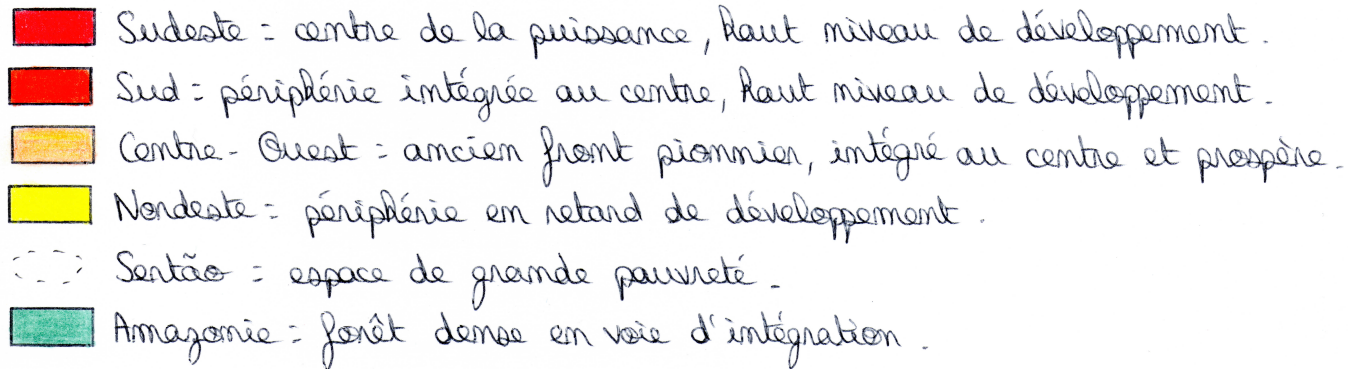 Sudeste = centre de la puissance, haut niveau de développement.
Sud = périphérie intégrée au centre, haut niveau de développement.
Centre-Ouest = ancien front pionnier, intégré au centre et prospère.
Nordeste = périphérie en retard de développement.
Sertão = espace de grande pauvreté.
Amazonie = forêt dense en voie d'intégration.